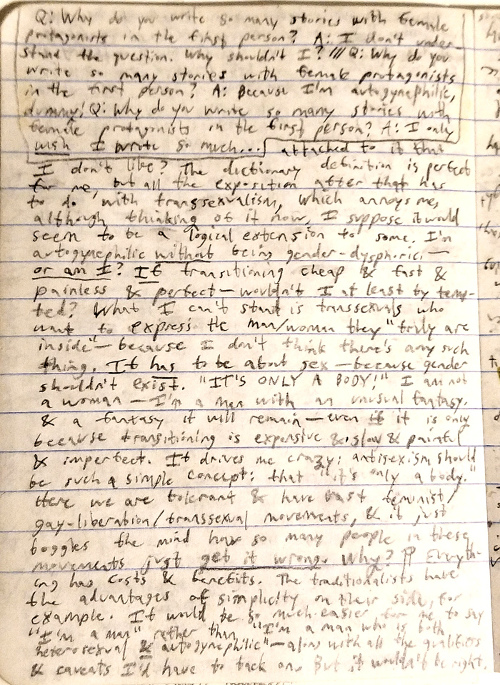 Q: Why do you write so many stories with female
protagonists in the first person? A: I don't under-
stand the question. Why shouldn't I? /// Q: Why do you
write so many stories with female protagonists
in the first person? A: Because I'm autogynephilic,
dummy! Q: Why do you write so many stories with
female protagonists in the first person? A: I only
wish I wrote so much... attached to it that
I don't like? The dictionary definition is perfect
for me, but all the exposition after that has
to do with transsexualism, which annoys me,
although thinking of it now, I suppose it would
seem to be a logical extension to some. I'm
autogynephilic without being gender-dysphoric—
or am I? If transitioning cheap & fast &
painless & perfect—wouldn't I at least by temp-
ted? What I can't stand is transsexuals who
want to express the man/woman they "truly are
inside"—because I don't think there's any such
thing. It has to be about sex—because gender
shouldn't exist. "IT'S ONLY A BODY!" I am not
a woman—I'm a man with an unusual fantasy.
& a fantasy it will remain—even if it is only
because transitioning is expensive & slow & painful
& imperfect. It drives me crazy; antisexism should
be such a simple concept: that "it's only a body."
Here we are tolerant & have vast feminist/
gay-liberation/transsexual movements, & it just
boggles the mind how so many people in these
movements just get it wrong. Why? ¶ Everyth-
ing has costs & benefits. The traditionalists have
the advantages of simplicity on their side, for
example. It would be so much easier for me to say
"I'm a man" rather than "I'm a man who is both
heterosexual & autogynephilic"—along with all the qualities
& caveats I'd have to tack on. But it wouldn't be right.